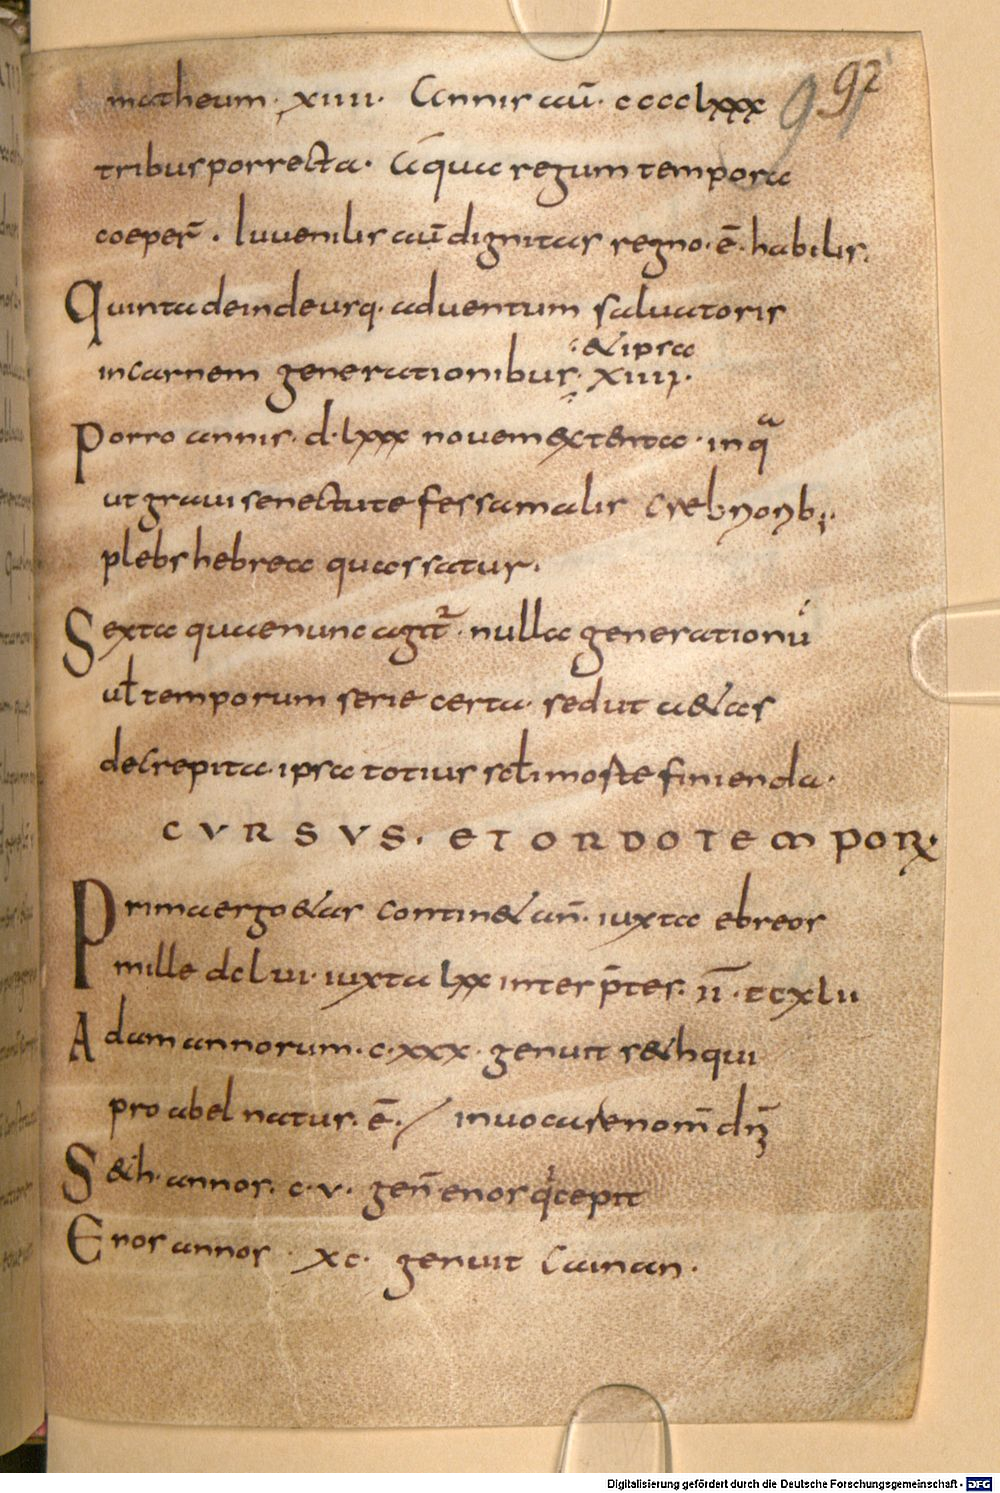 92
9
matheum · xiiii · Annis aū · cccclxxx
tribus porrecta · A qua regum tempora
coeper̄ · Iuvenilis aū dignitas regno · ē · habilis ·
Quinta deinde usq · adventum salvatoris
& ipsa
in carnem generationibus · xiiii ·
Porro annis · d · lxxx novem extenta · in qa
ut gravi senectute fessa malis crebrioribꝫ ·
plebs hebrea quassatur ·
Sexta quae nunc agit᷑ · nulla generationū
ul̄ temporum serie certa · sed ut a&as
decrepita · ipsa totius sc̄li morte finienda ·
CVRSVS · ET ORDO TEMPORꝜ ·
Prima ergo &as contin& an̄ · iuxta ebreos
mille dclvi · iuxta lxx inter p̄tes · ii̅ · ccxlii
Adam annorum · c · xxx · genuit s&h qui
pro abel natus · ē · /
invocare nom̄ dn̄i
S&h · annos · c · v · gen̄ enos qi cepit
Enos annos · xc · genuit Cainan ·
Digitalisierung gefördert durch die Deutsche Forschungsgemeinschaft - DFG